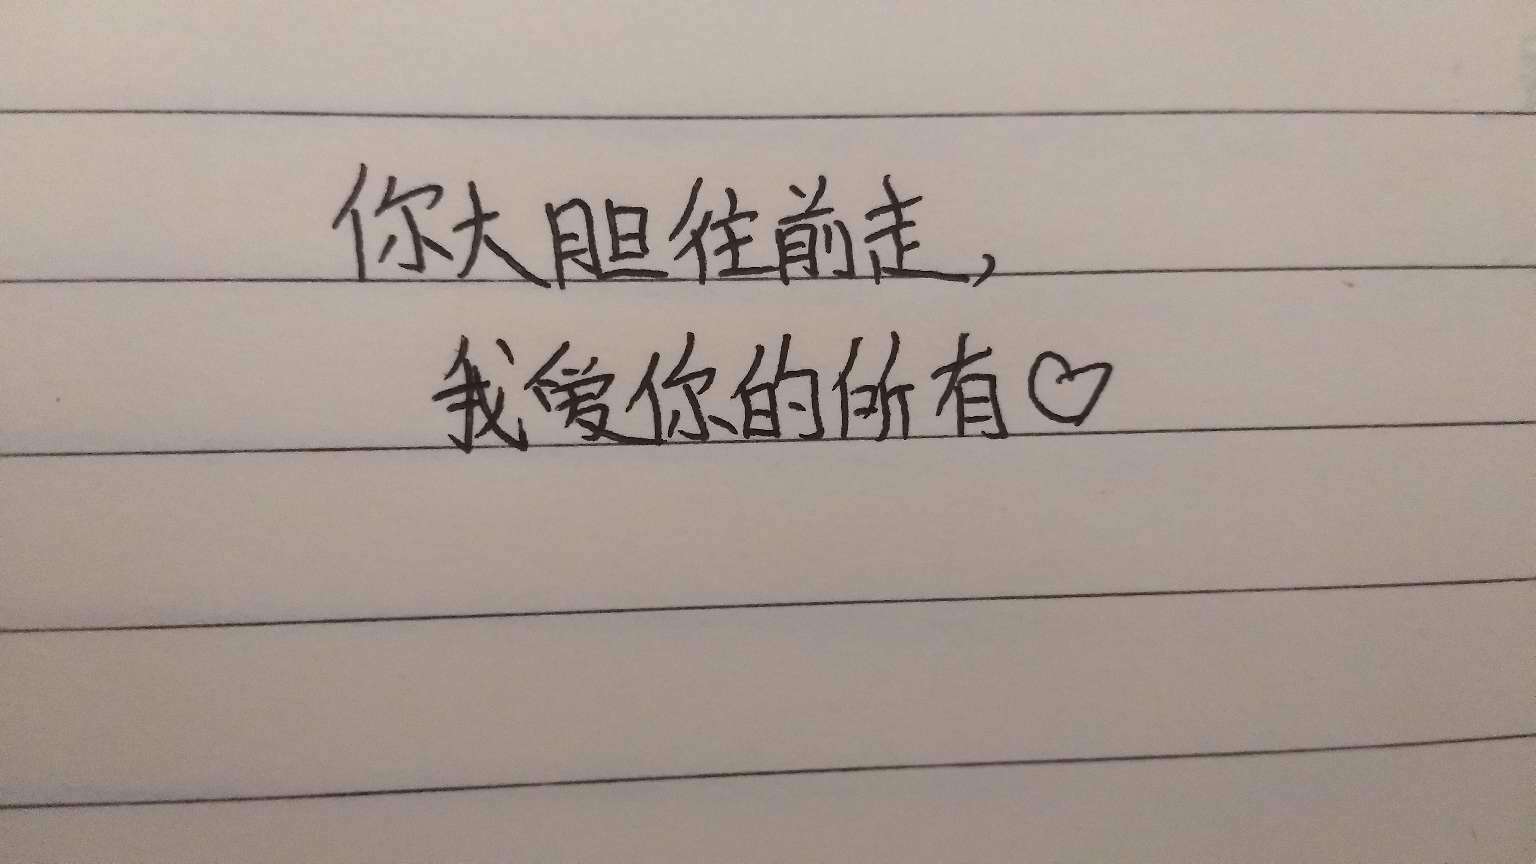 你大胆往前走，
我爱你的所有♡